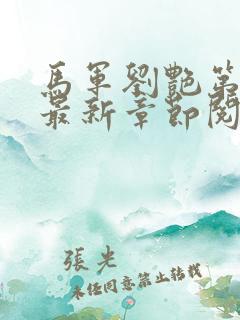 馬軍劉艷第
最新章節閱
張光
未經同意禁止轉載